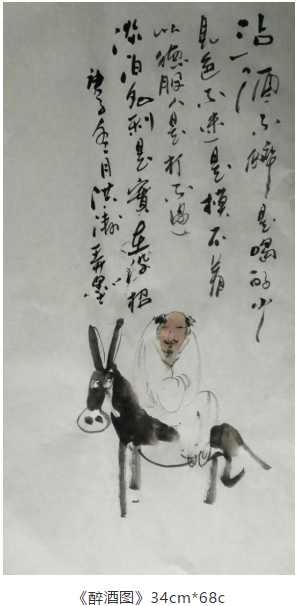 沾酒不醉是喝的少
見色不迷是摸不着
以德服人是打不過
淡泊名利是實在沒招
庚子 月洪 弄墨
《醉酒图》34cm*68c